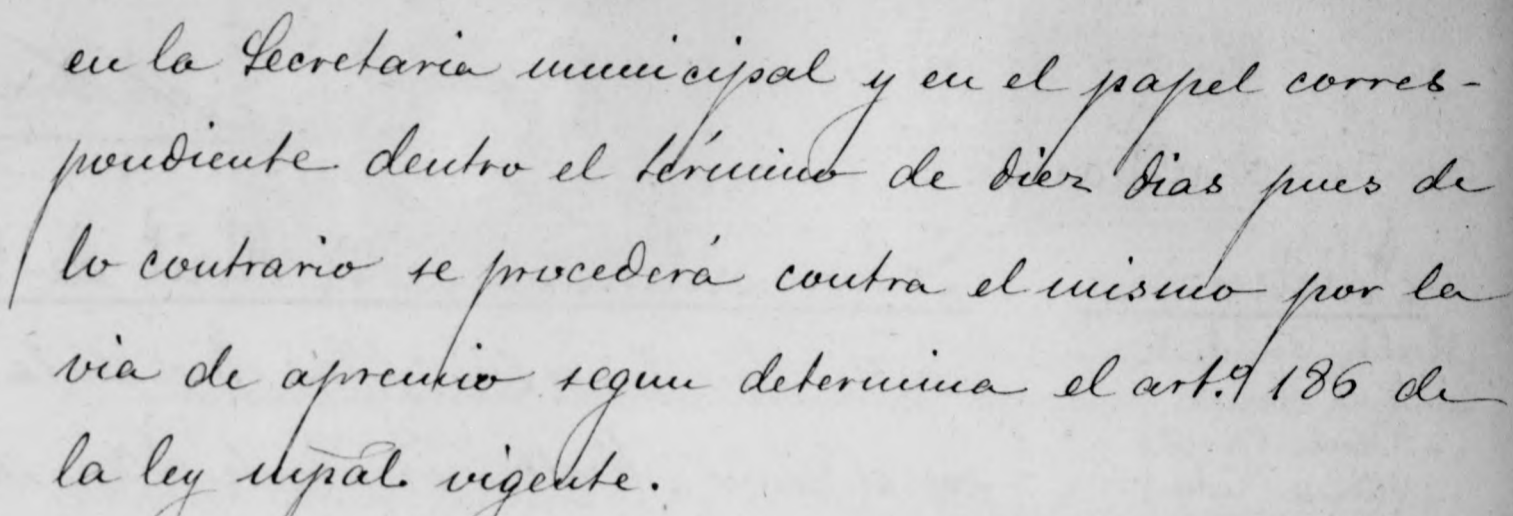 en la Secretaria municipal y en el papel corres-
pondiente dentro el término de diez dias pues de
lo contrario se procederá contra el mismo por la
via de apremio segun determina el art.º 186 de
la ley mpal. vigente.